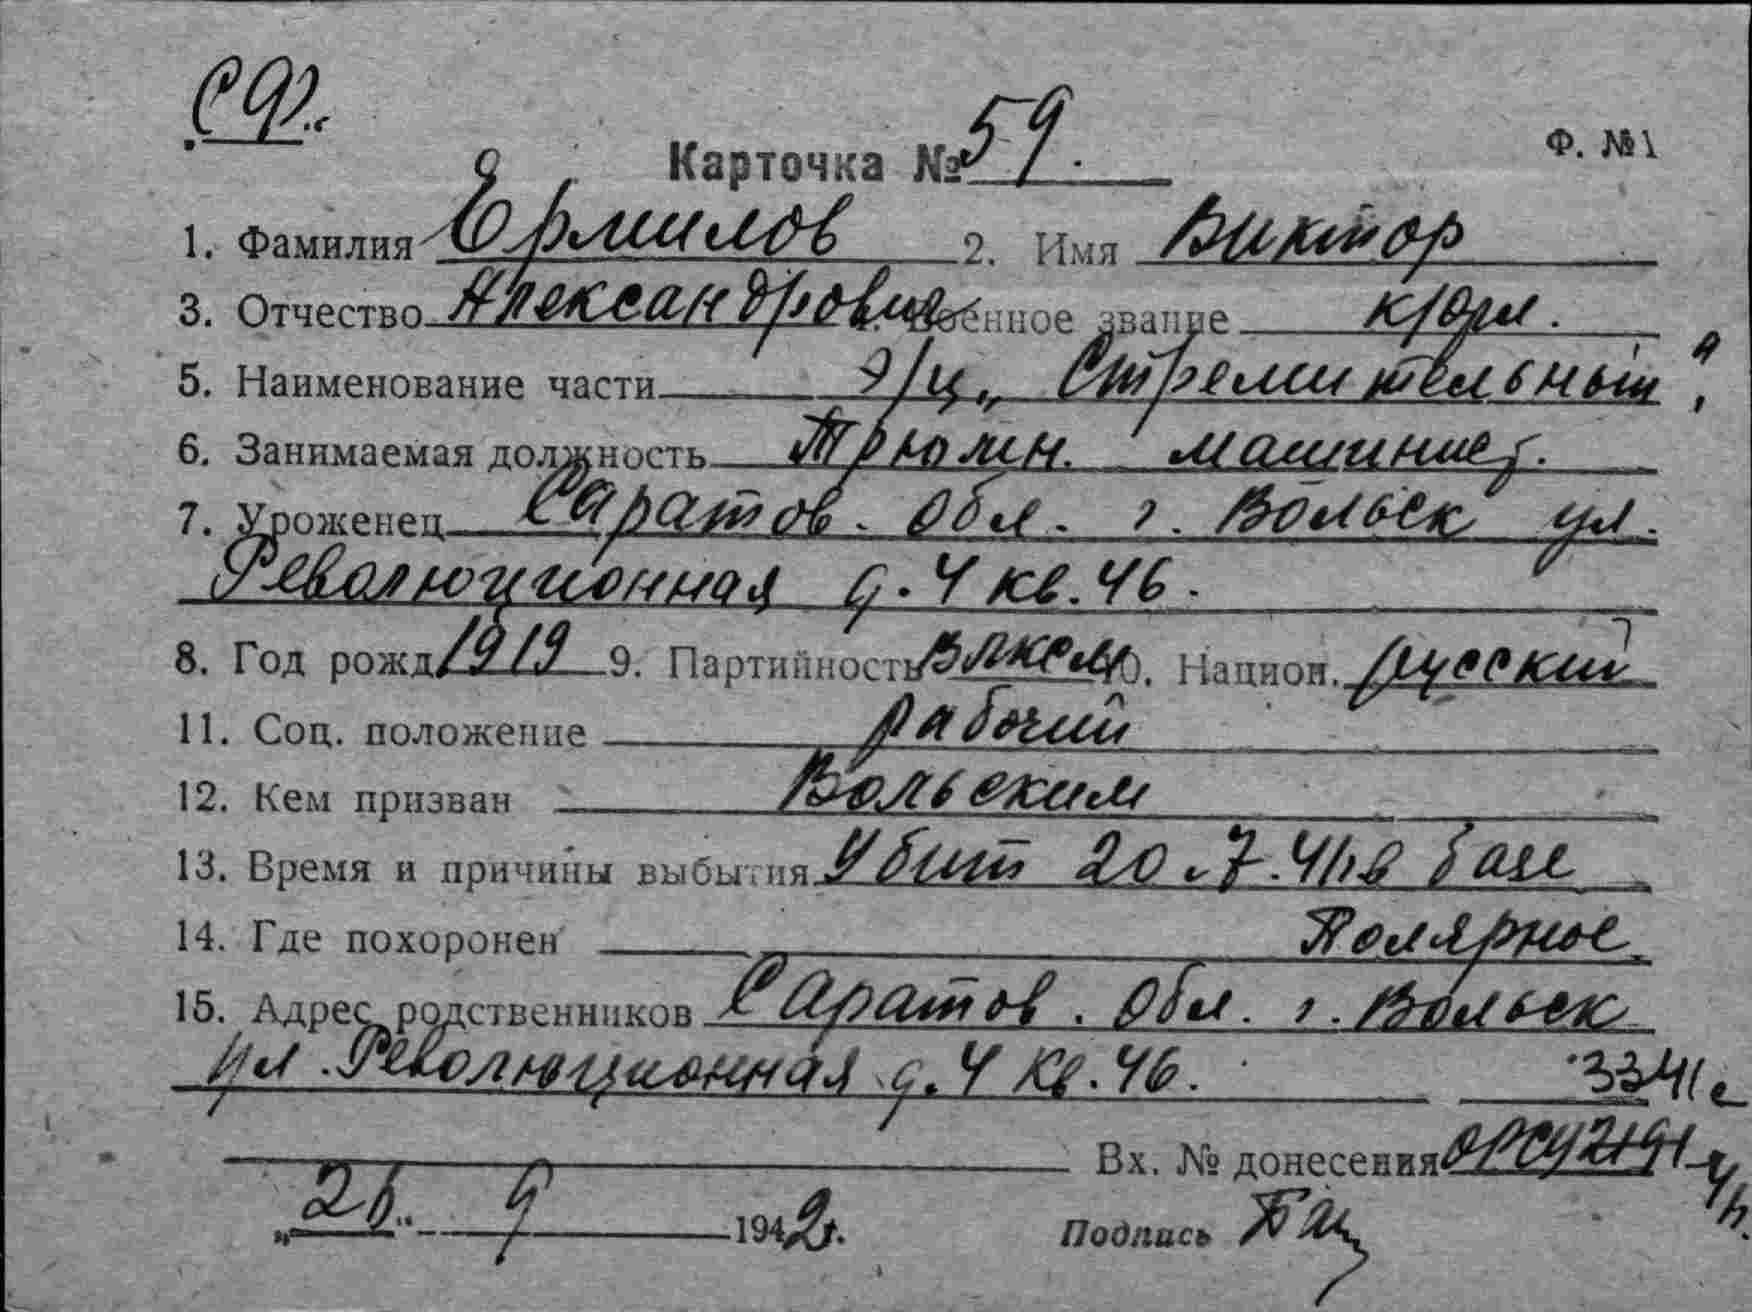 СФ.
Карточка № 59.
Ф. №1
1. Фамилия Ермилов 2. Имя Виктор
3. Отчество Александрович Военное звание к/фл.
5. Наименование части э/м „Стремительный“
6. Занимаемая должность Трюмн. машинист.
7. Уроженец Саратов. обл. г. Вольск ул.
Революционная д. 4 кв. 46.
8. Год рожд 1919 9. Партийность ВЛКСМ 10. Национ. русский
11. Соц. положение рабочий
12. Кем призван Вольским
13. Время и причины выбытия Убит 20.7.41 в базе
14. Где похоронен Полярное.
15. Адрес родственников Саратов. обл. г. Вольск
ул. Революционная д. 4 кв. 46. 3341с
Вх. № донесения
„26“ 9 1942г. Подпись